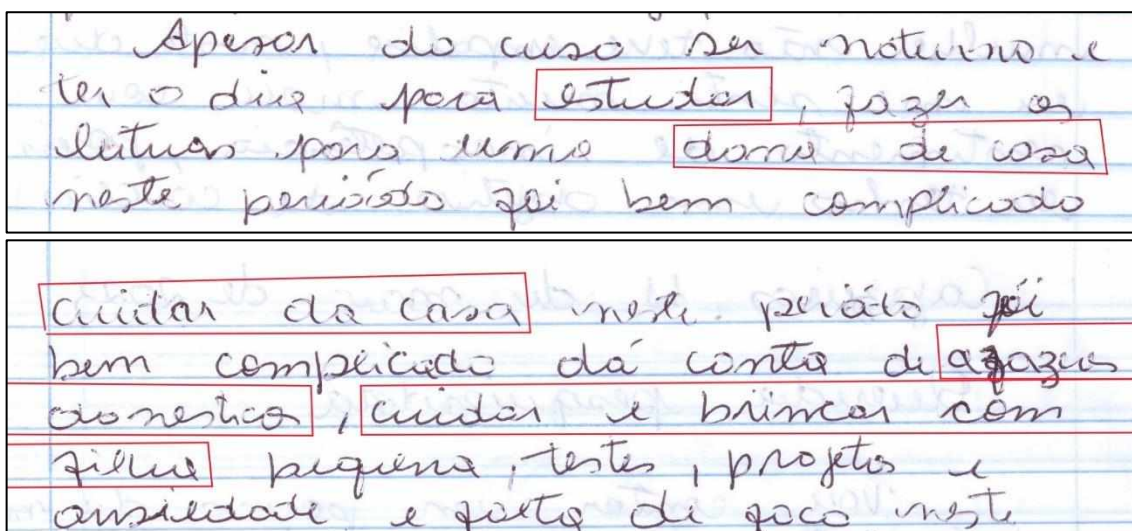 Apesar do curso ser noturno e
ter o dia para estudar, fazer as
leituras para uma dona de casa
neste periódo foi bem complicado
Cuidar da casa neste periódo foi
bem complicado dá conta de afazeres
domestica, cuidar e brincar com
filha pequena, testes, projetos e
ansiedade e falta de foco neste